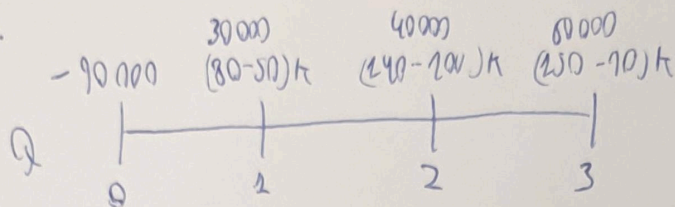 30000 40000 60000
-90000 (80-50)K (140-100)K (150-90)K
Q
0 1 2 3